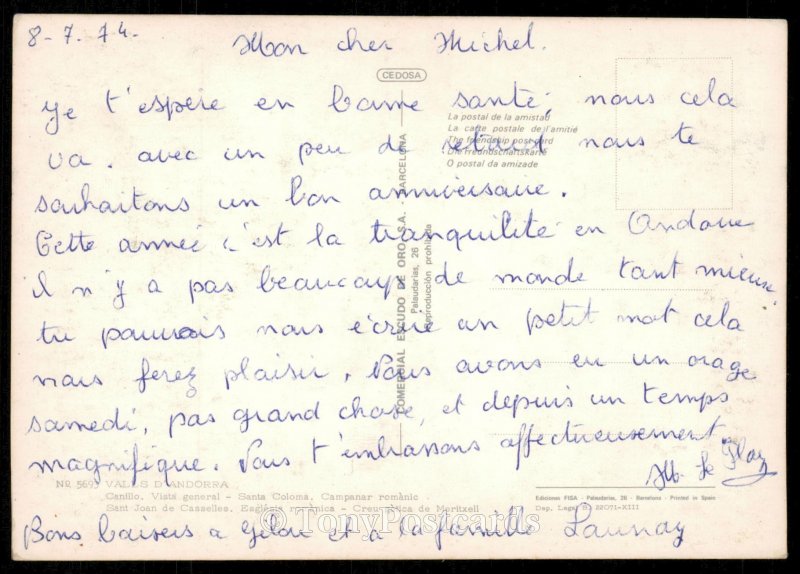 8-7.74.
Mon cher Michel.
CEDOSA
Je t'espère en bonne santé, nous cela
La postal de la amistad
La carte postale de l'amitié
The friendship post card
Die Freundschaftskarte
O postal da amizade
va. avec un peu de retard nous te
souhaitons un bon anniversaire.
Cette année c'est la tranquilité en Andorre
il n'y a pas beaucoup de monde tant mieux
tu pourrais nous écrire un petit mot cela
nous ferez plaisir. Nous avons eu un orage
samedi, pas grand chose, et depuis un temps
magnifique. Nous t'embrassons affectueusement
M. Le
COMERCIAL ESCUDO DE ORO, S.A. - BARCELONA
Palaudarias, 26
Reproducción prohibida
No. 5695 VALLS D'ANDORRA
Canillo. Vista general - Santa Coloma. Campanar romànic
Sant Joan de Casselles. Església romànica - Creu gótica de Meritxell
Ediciones FISA - Palaudarias, 26 - Barcelona - Printed in Spain
Dep. Legal B. 22071-XIII
© TonyPostcards
Bons baisers a et a la famille Launay